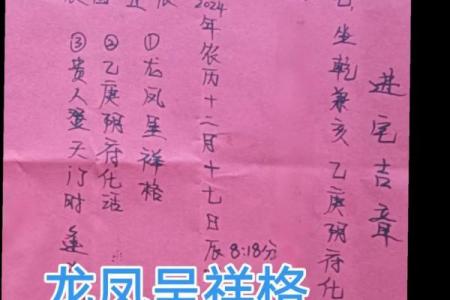 进宅吉章
坐乾兼亥 乙庚阴府化
2024年农历十二月十七日辰 8:18分
①龙凤呈祥格
②乙庚阴府化活
③贵人登天门时
龙凤呈祥格